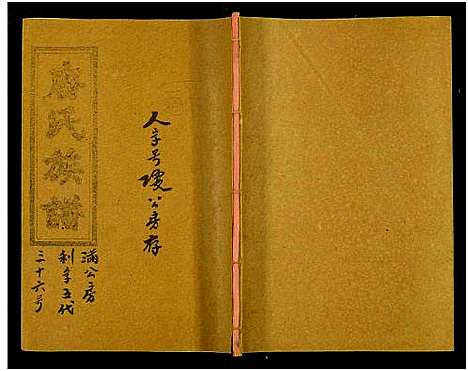 人字号公房存
氏族譜
滿公房
利字五代
三十六号